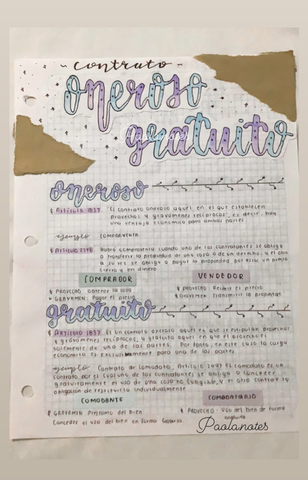 contrato
oneroso
gratuito
oneroso
Artículo 1837. Es contrato oneroso aquel en el que se establecen
provechos y gravámenes recíprocos, es decir, hay
una ventaja económica para ambas partes
ejemplo COMPRAVENTA
Artículo 2248 Habrá compraventa cuando uno de los contratantes se obliga
a transferir la propiedad de una cosa o de un derecho, y el otro
a su vez se obliga a pagar
cierto y en dinero
COMPRADOR VENDEDOR
PROVECHO Obtener la PROVECHO Recibir el precio
GRAVAMEN Pagar el precio GRAVAMEN Transmitir la propiedad
gratuito
Artículo 1837 Es un contrato oneroso aquel en que se estipulan provechos
y gravámenes recíprocos, y gratuito aquel en que el provecho es
solamente de una de las partes. Por tanto, en este caso la carga
económica es exclusivamente para una de las partes.
ejemplo Contrato de comodato, Artículo 2497 El comodato es un
contrato por el cual uno de los contratantes se obliga a conceder
gratuitamente el uso de una cosa no fungible, y el otro contrae la
obligación de restituirla individualmente.
COMODANTE COMODATARIO
GRAVAMEN Préstamo del bien PROVECHO Uso del bien de forma
Conceder el uso del bien en forma gratuita
Paolanotes